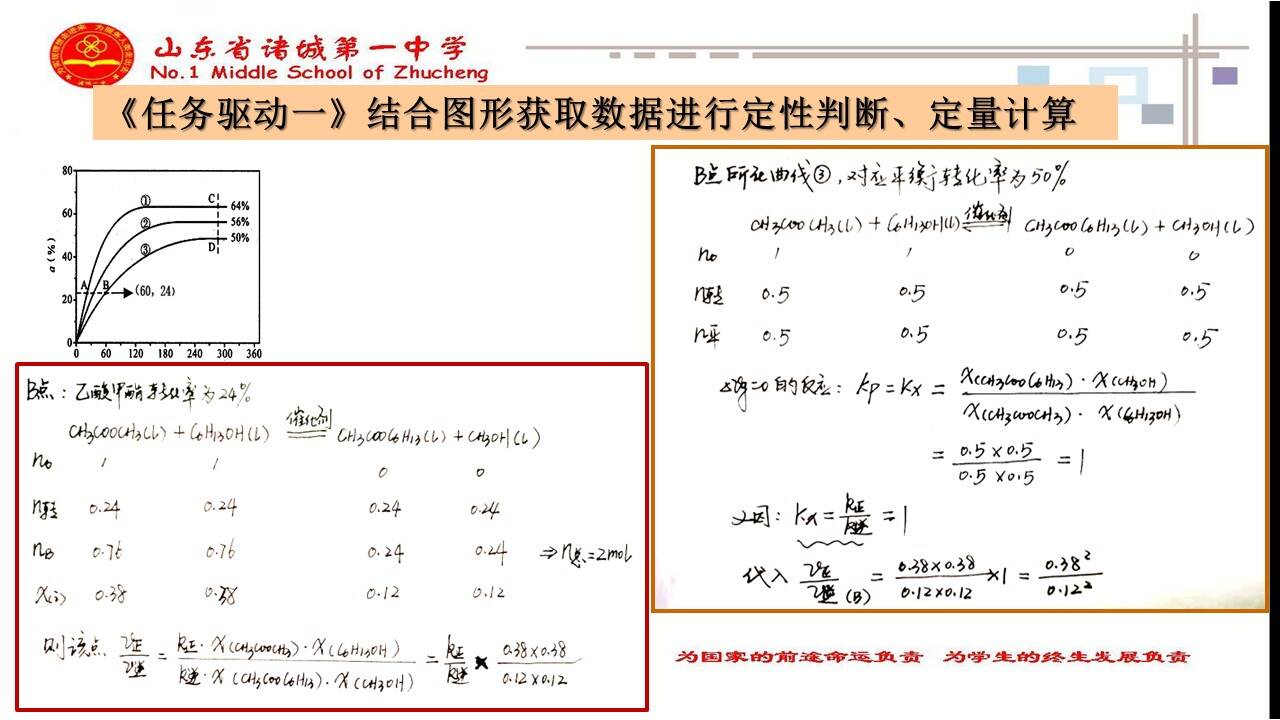 山东省诸城第一中学
No.1 Middle School of Zhucheng
《任务驱动一》结合图形获取数据进行定性判断、定量计算
80
60
40
20
0
α(%)
① C 64%
② 56%
③ D 50%
A B (60, 24)
0 60 120 180 240 300 360
B点：乙酸甲酯转化率为24%
CH3COOCH3(l) + C6H13OH(l) 催化剂 CH3COOC6H13(l) + CH3OH(l)
n0 1 1 0 0
n转 0.24 0.24 0.24 0.24
nB 0.76 0.76 0.24 0.24 ⇒ n总=2mol
x(i) 0.38 0.38 0.12 0.12
则该点 v正/v逆 = k正·x(CH3COOCH3)·x(C6H13OH) / k逆·x(CH3COOC6H13)·x(CH3OH) = k正/k逆 × 0.38×0.38 / 0.12×0.12
B点所在曲线③，对应平衡转化率为50%
CH3COOCH3(l) + C6H13OH(l) 催化剂 CH3COOC6H13(l) + CH3OH(l)
n0 1 1 0 0
n转 0.5 0.5 0.5 0.5
n平 0.5 0.5 0.5 0.5
△νg=0的反应：Kp=Kx = x(CH3COOC6H13)·x(CH3OH) / x(CH3COOCH3)·x(C6H13OH)
= 0.5×0.5 / 0.5×0.5 = 1
又因：Kx = k正/k逆 = 1
代入 v正/v逆(B) = 0.38×0.38 / 0.12×0.12 ×1 = 0.38² / 0.12²
为国家的前途命运负责 为学生的终生发展负责